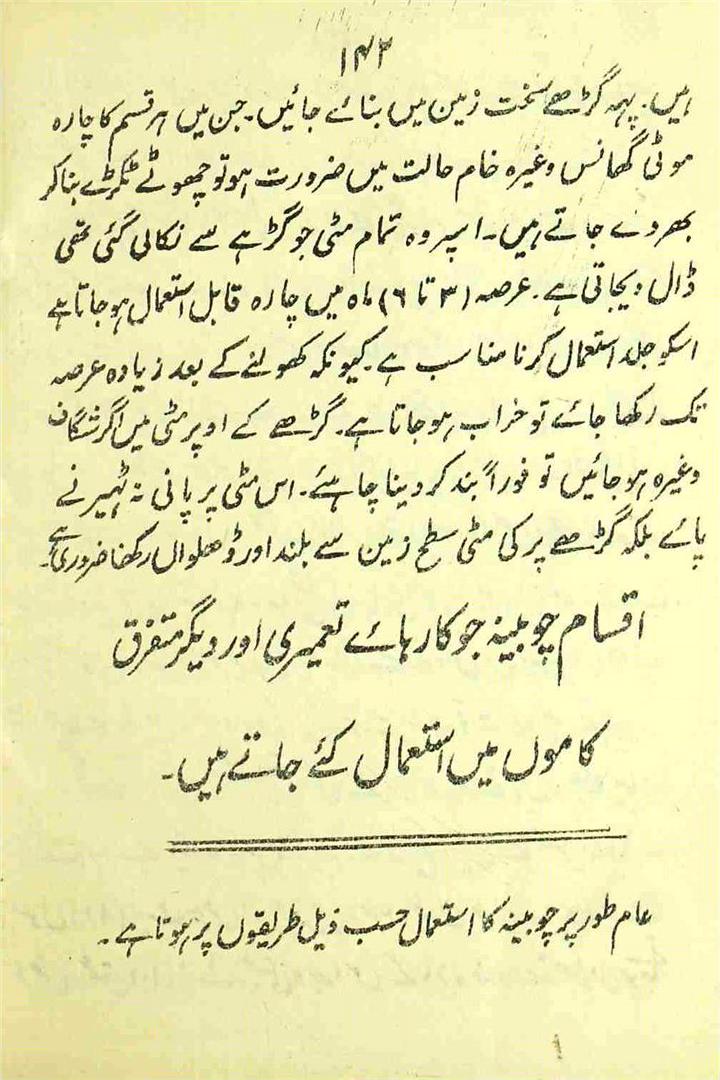 ۱۴۲
ہیں۔ یہہ گڑھے سخت زمین میں بنائے جائیں۔ جن میں ہر قسم کا چارہ
موٹی گھانس وغیرہ خام حالت میں ضرورت ہو تو چھوٹے ٹکڑے بنا کر
بھر دے جاتے ہیں۔ اسپر وہ تمام مٹی جو گڑہے سے نکالی گئی تھی
ڈال دیجاتی ہے۔ عرصہ (۳ تا ۶) ماہ میں چارہ قابل استعمال ہو جاتا ہے
اسکو جلد استعمال کرنا مناسب ہے۔ کیونکہ کھولنے کے بعد زیادہ عرصہ
تک رکھا جائے تو خراب ہو جاتا ہے۔ گڑھے کے اوپر مٹی میں اگر شگاف
وغیرہ ہو جائیں تو فوراً بند کر دینا چاہئے۔ اس مٹی پر پانی نہ ٹہیرنے
پائے بلکہ گڑھے پر کی مٹی سطح زمین سے بلند اور ڈھلواں رکھنا ضروری ہے۔
اقسام چوبینہ جو کارہائے تعمیری اور دیگر متفرق
کاموں میں استعمال کئے جاتے ہیں۔
عام طور پر چوبینہ کا استعمال حسب ذیل طریقوں پر ہوتا ہے۔